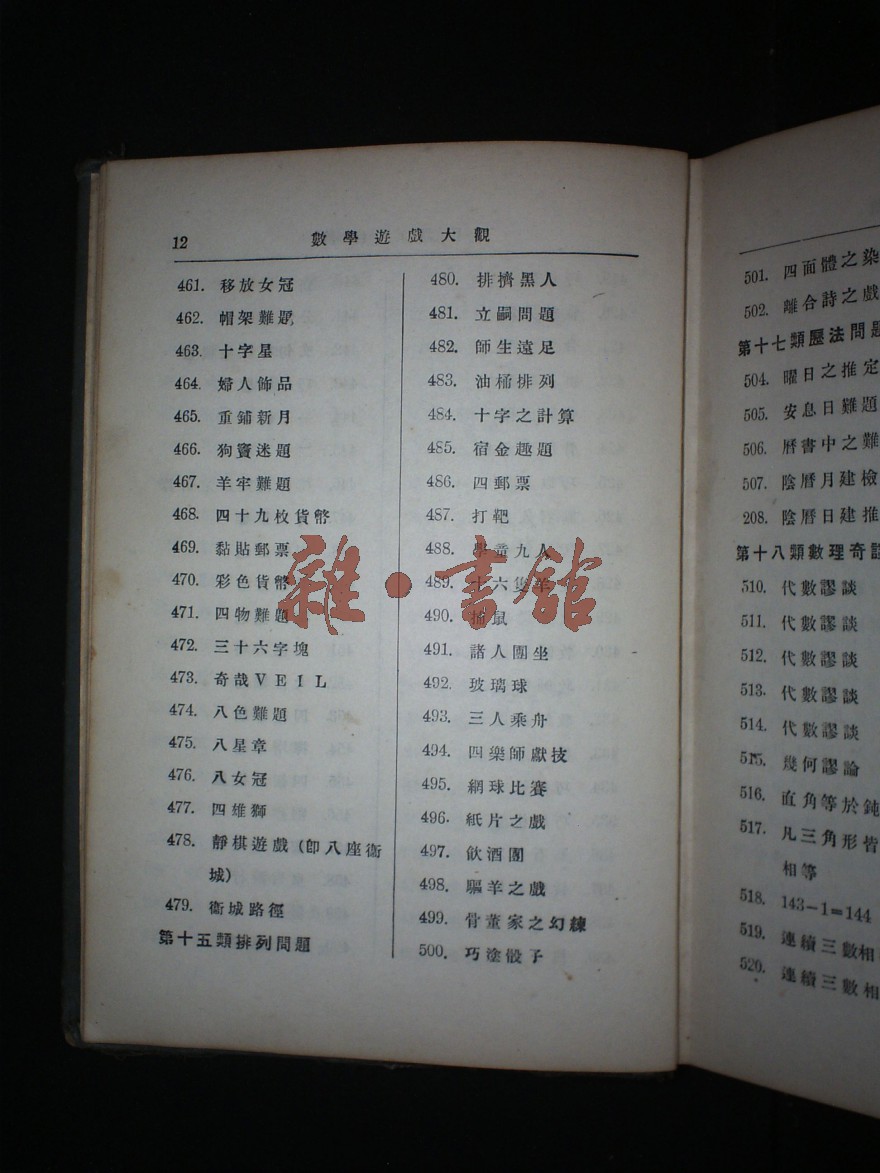 12
數學遊戲大觀
461. 移放女冠
462. 帽架難題
463. 十字星
464. 婦人飾品
465. 重鋪新月
466. 狗竇迷題
467. 羊牢難題
468. 四十九枚貨幣
469. 黏貼郵票
470. 彩色貨幣
471. 四物難題
472. 三十六字塊
473. 奇哉VEIL
474. 八色難題
475. 八星章
476. 八女冠
477. 四雄獅
478. 靜棋遊戲(即八座衞
城)
479. 衞城路徑
第十五類排列問題
480. 排擠黑人
481. 立嗣問題
482. 師生遠足
483. 油桶排列
484. 十字之計算
485. 宿金趣題
486. 四郵票
487. 打靶
488. 學童九人
489. 十六隻羊
490. 捕鼠
491. 諸人團坐
492. 玻璃球
493. 三人乘舟
494. 四樂師獻技
495. 網球比賽
496. 紙片之戲
497. 飲酒團
498. 驅羊之戲
499. 骨董家之幻練
500. 巧塗骰子
雜·書館
501. 四面體之染
502. 離合詩之戲
第十七類曆法問題
504. 曜日之推定
505. 安息日難題
506. 曆書中之難
507. 陰曆月建檢
208. 陰曆日建推
第十八類數理奇談
510. 代數謬談
511. 代數謬談
512. 代數謬談
513. 代數謬談
514. 代數謬談
515. 幾何謬論
516. 直角等於鈍
517. 凡三角形皆
相等
518. 143-1=144
519. 連續三數相
520. 連續三數相